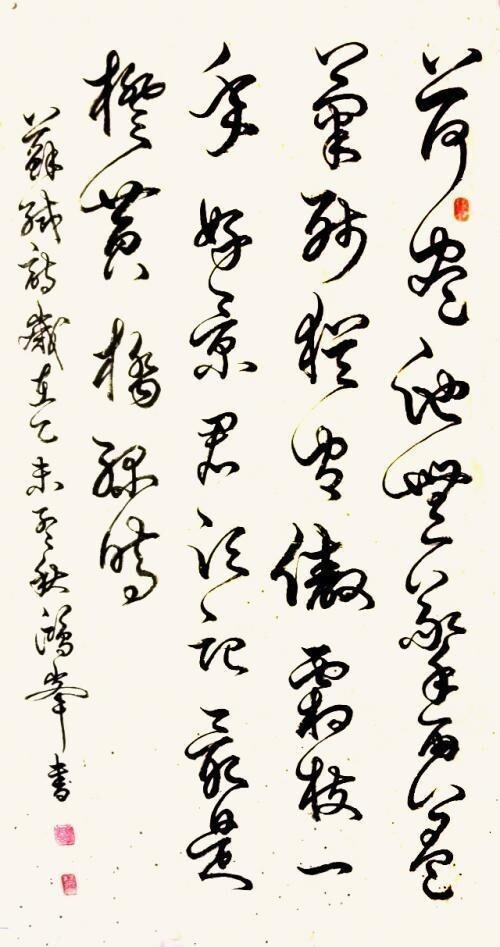 荷盡池無擎雨蓋
菊殘猶有傲霜枝一
年好景君須記最是
橙黃橘綠時
蘇軾詩歲在乙未秋鴻峯書